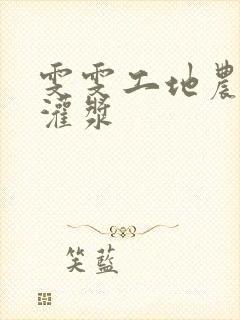 雯雯工地農
灌漿
笑藍